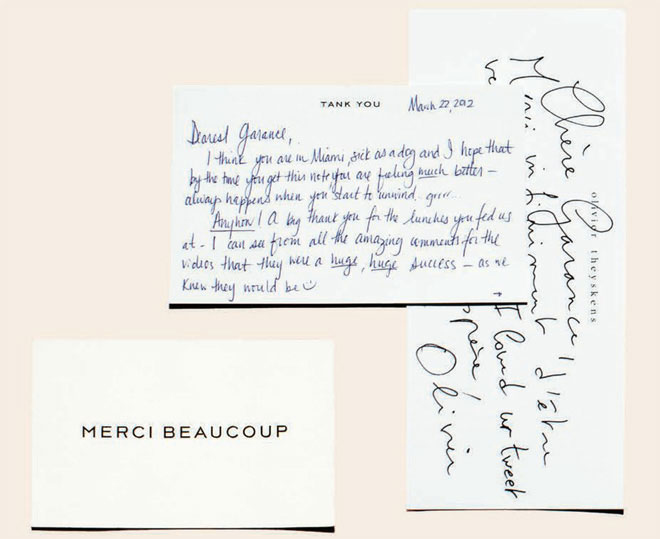 TANK YOU
March 22, 2012
Dearest Garance,
I think you are in Miami, sick as a dog and I hope that
by the time you get this note, you are feeling much better –
always happens when you start to unwind.. grrr...
Anyhow! A big thank you for the lunches you fed us
at – I can see from all the amazing comments for the
videos that they were a huge, huge success – as we
knew they would be ☺
olivier theyskens
Chère Garance,
Merci infiniment d'être
ur tweet
Olivier
MERCI BEAUCOUP